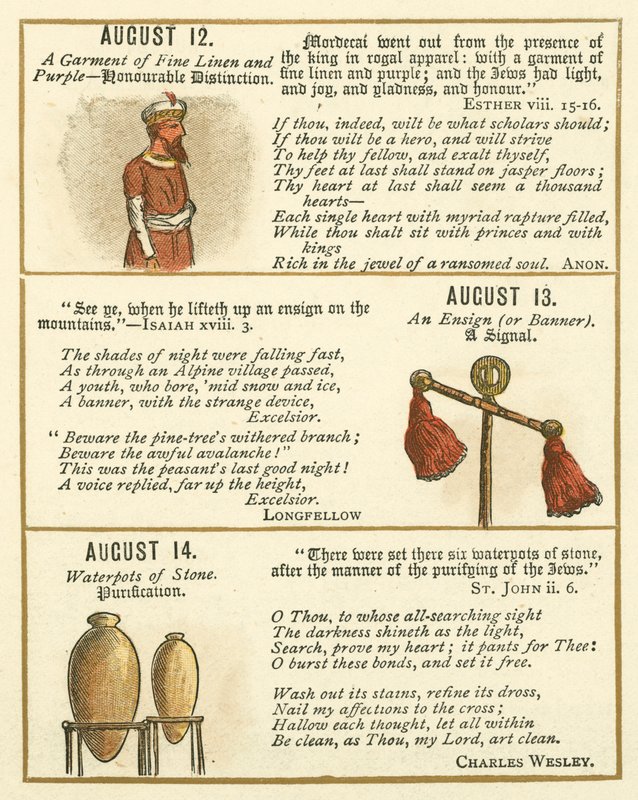 AUGUST 12.
A Garment of Fine Linen and
Purple—Honourable Distinction.
Mordecai went out from the presence of
the king in rogal apparel: with a garment of
fine linen and purple; and the Jews had light,
and joy, and gladness, and honour."
ESTHER viii. 15-16.
If thou, indeed, wilt be what scholars should;
If thou wilt be a hero, and will strive
To help thy fellow, and exalt thyself,
Thy feet at last shall stand on jasper floors;
Thy heart at last shall seem a thousand
hearts—
Each single heart with myriad rapture filled,
While thou shalt sit with princes and with
kings
Rich in the jewel of a ransomed soul. ANON.
"See ye, when he lifteth up an ensign on the
mountains."—ISAIAH xviii. 3.
The shades of night were falling fast,
As through an Alpine village passed,
A youth, who bore, 'mid snow and ice,
A banner, with the strange device,
Excelsior.
"Beware the pine-tree's withered branch;
Beware the awful avalanche!"
This was the peasant's last good night!
A voice replied, far up the height,
Excelsior.
LONGFELLOW
AUGUST 13.
An Ensign (or Banner).
A Signal.
AUGUST 14.
Waterpots of Stone.
Purification.
"There were set there six waterpots of stone,
after the manner of the purifying of the Jews."
ST. JOHN ii. 6.
O Thou, to whose all-searching sight
The darkness shineth as the light,
Search, prove my heart; it pants for Thee:
O burst these bonds, and set it free.
Wash out its stains, refine its dross,
Nail my affections to the cross;
Hallow each thought, let all within
Be clean, as Thou, my Lord, art clean.
CHARLES WESLEY.